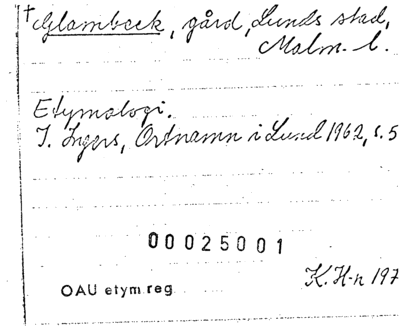 †Glambeck, gård, Lunds stad,
Malm. l.
Etymologi.
I. Ingers, Ortnamn i Lund 1962, s. 5
00025001
OAU etym.reg.
K. H-n 197